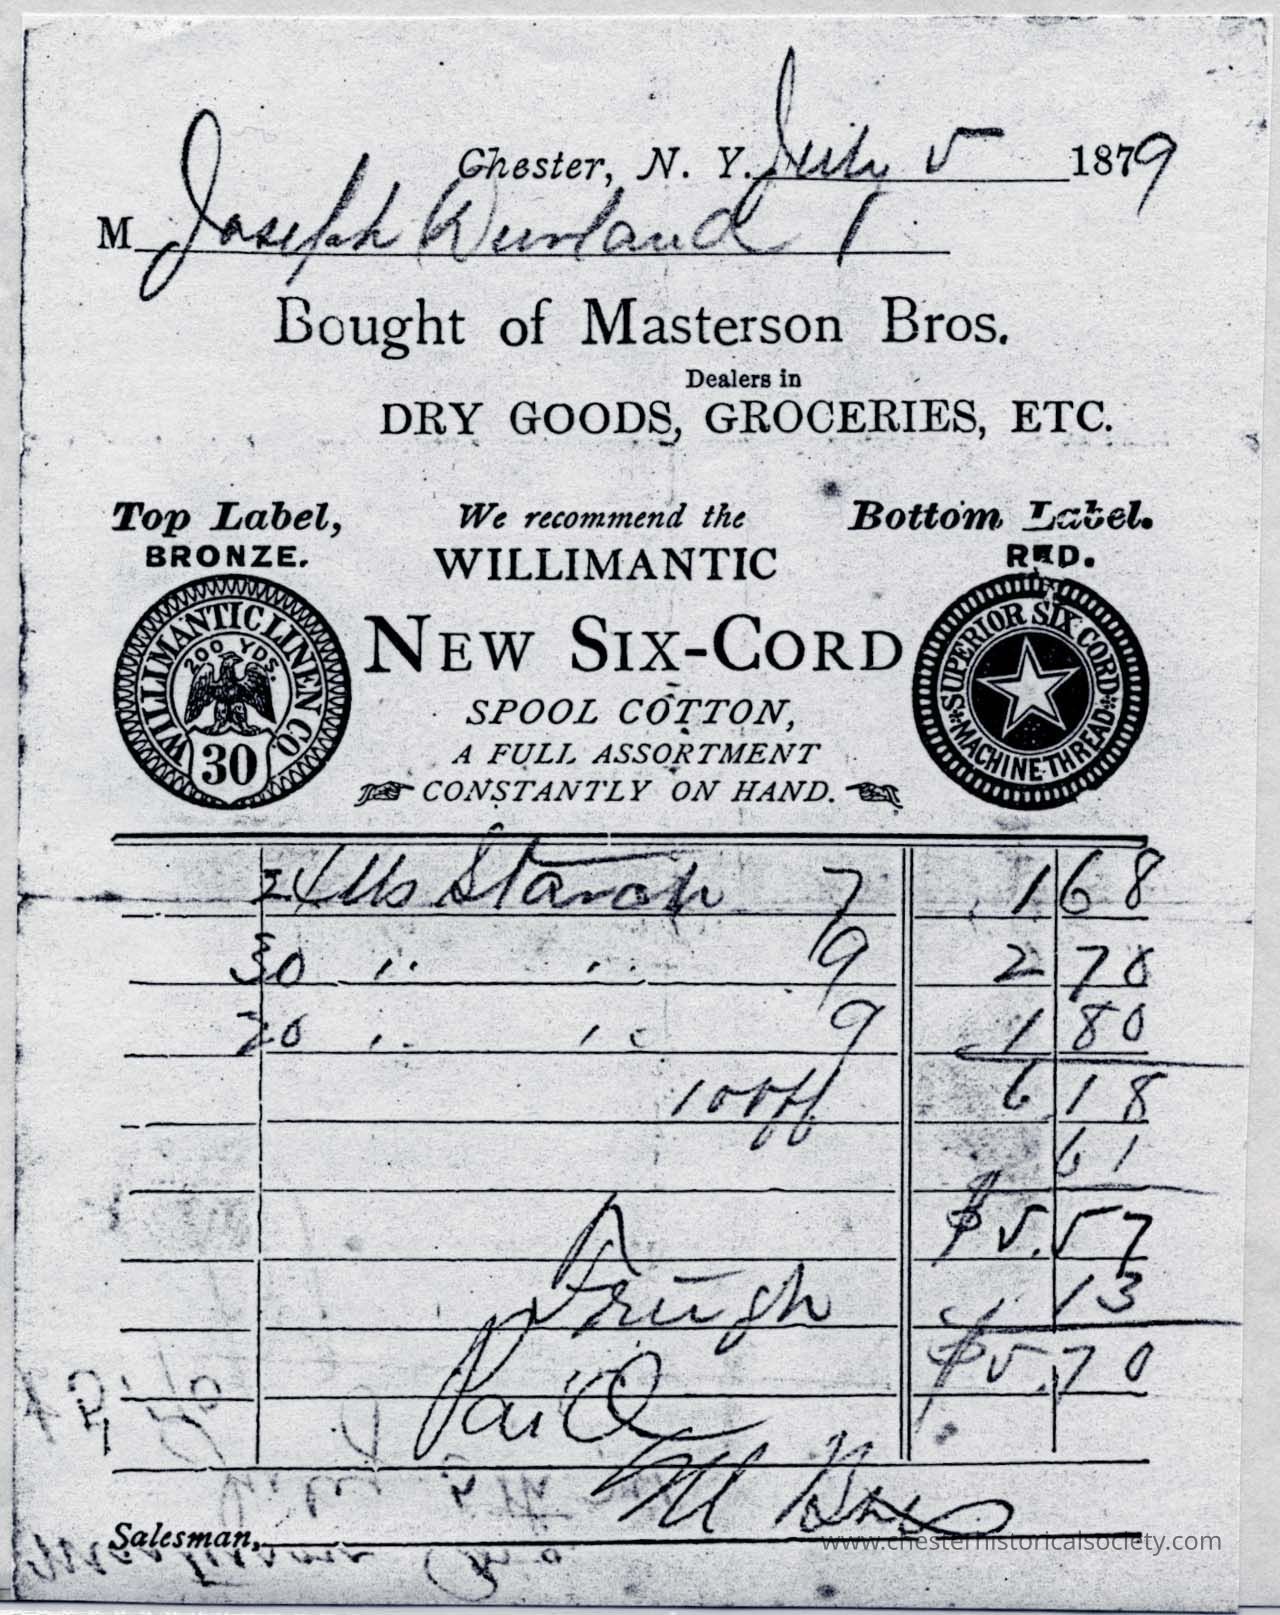 Chester, N. Y. July 5 1879
M Joseph Durland
Bought of Masterson Bros.
Dealers in
DRY GOODS, GROCERIES, ETC.
Top Label,
BRONZE.
We recommend the
WILLIMANTIC
Bottom Label.
RED.
WILLIMANTIC LINEN CO.
200 YDS.
30
NEW SIX-CORD
SPOOL COTTON,
A FULL ASSORTMENT
CONSTANTLY ON HAND.
SUPERIOR SIX CORD
MACHINE THREAD
24 lbs Starch 7 1 68
30 " " 9 2 70
20 " " 9 1 80
10 off 6 18
61
$5.57
13
$5.70
Paid
M Bros
Salesman,
www.chesterhistoricalsociety.com